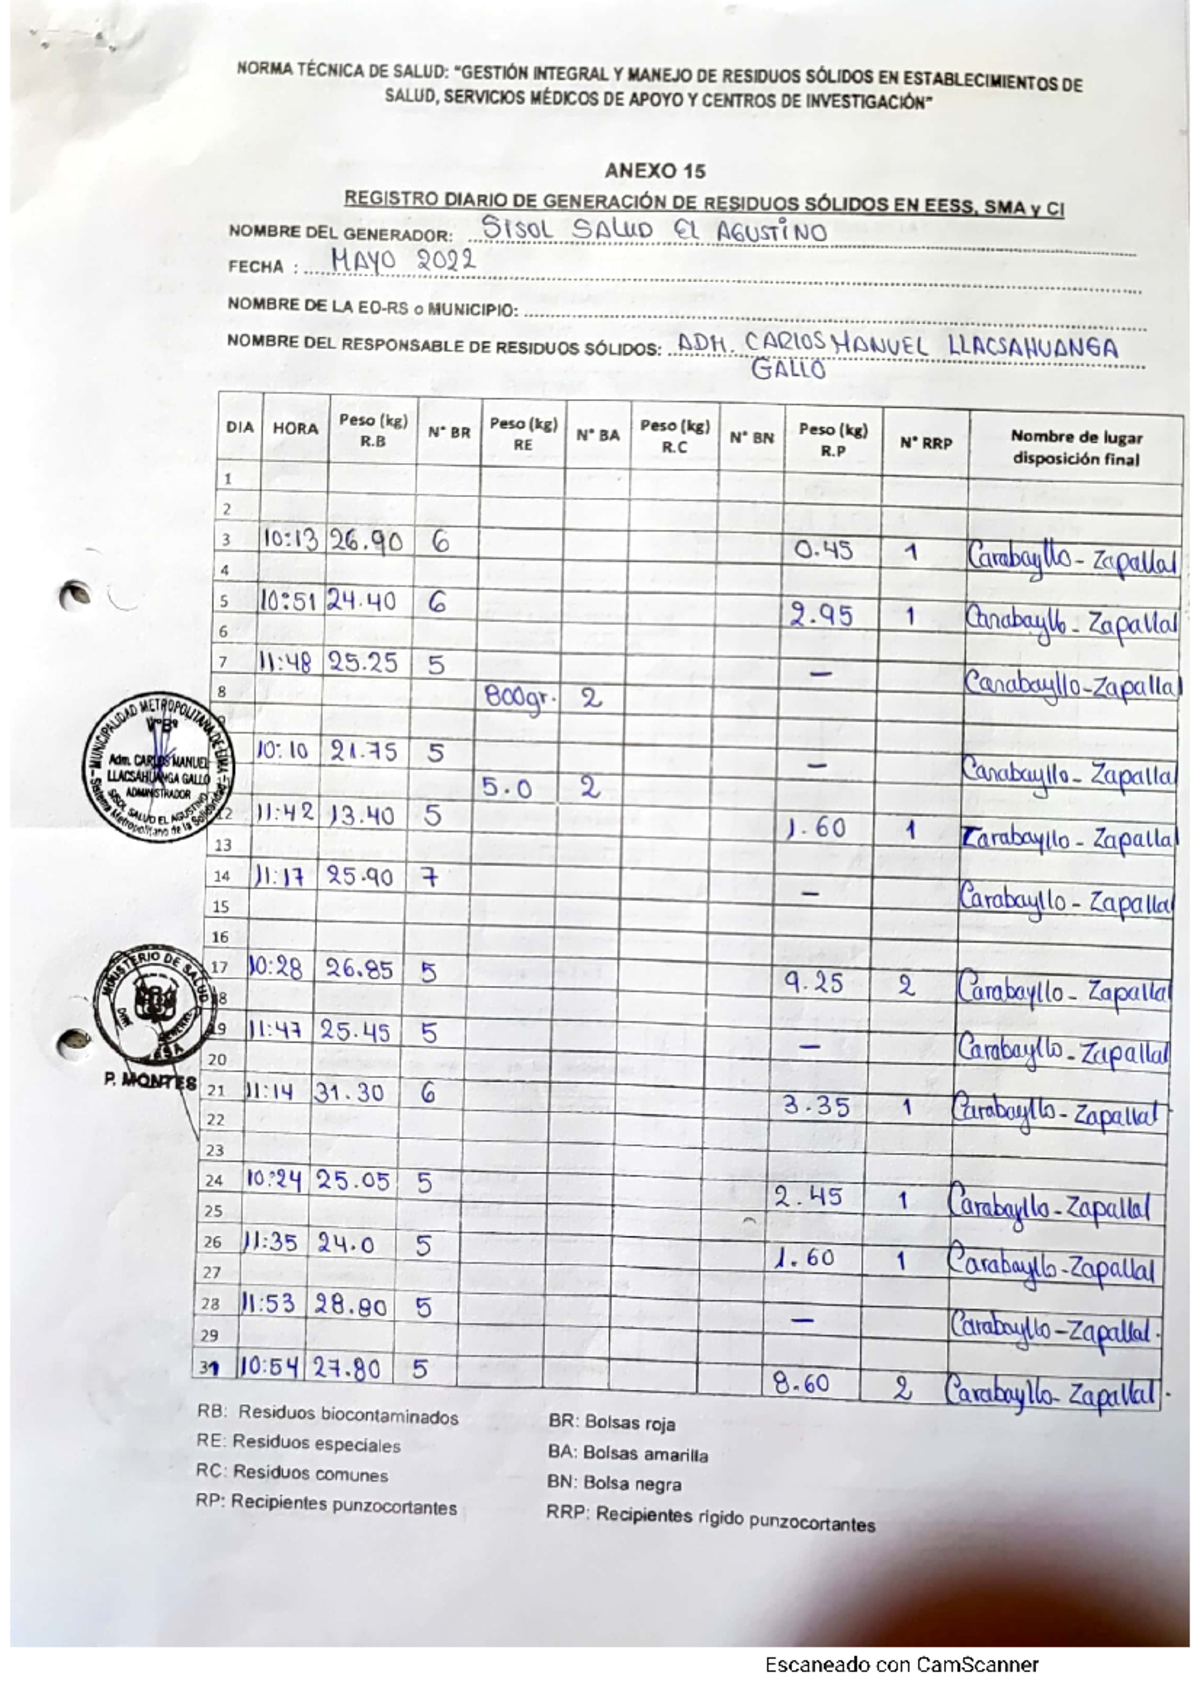 NORMA TÉCNICA DE SALUD: "GESTIÓN INTEGRAL Y MANEJO DE RESIDUOS SÓLIDOS EN ESTABLECIMIENTOS DE
SALUD, SERVICIOS MÉDICOS DE APOYO Y CENTROS DE INVESTIGACIÓN"
ANEXO 15
REGISTRO DIARIO DE GENERACIÓN DE RESIDUOS SÓLIDOS EN EESS, SMA y CI
NOMBRE DEL GENERADOR: SISOL SALUD El AGUSTINO
FECHA : MAYO 2022
NOMBRE DE LA EO-RS o MUNICIPIO:
NOMBRE DEL RESPONSABLE DE RESIDUOS SÓLIDOS: ADM. CARLOS MANUEL LLACSAHUANGA
GALLO
DIA HORA Peso (kg) R.B N° BR Peso (kg) RE N° BA Peso (kg) R.C N° BN Peso (kg) R.P N° RRP Nombre de lugar disposición final
1
2
3 10:13 26.90 6 0.45 1 Carabayllo - Zapallal
4
5 10:51 24.40 6 2.95 1 Carabayllo - Zapallal
6
7 11:48 25.25 5 — Carabayllo - Zapallal
8 800gr. 2
10:10 21.75 5 — Carabayllo - Zapallal
5.0 2
12 11:42 13.40 5 1.60 1 Carabayllo - Zapallal
13
14 11:17 25.90 7 — Carabayllo - Zapallal
15
16
17 10:28 26.85 5 9.25 2 Carabayllo - Zapallal
18
19 11:47 25.45 5 — Carabayllo - Zapallal
20
21 11:14 31.30 6 3.35 1 Carabayllo - Zapallal
22
23
24 10:24 25.05 5 2.45 1 Carabayllo - Zapallal
25
26 11:35 24.0 5 1.60 1 Carabayllo - Zapallal
27
28 11:53 28.80 5 — Carabayllo - Zapallal.
29
31 10:54 27.80 5 8.60 2 Carabayllo - Zapallal.
MUNICIPALIDAD METROPOLITANA DE LIMA
V°B°
Adm. CARLOS MANUEL
LLACSAHUANGA GALLO
ADMINISTRADOR
SISOL SALUD EL AGUSTINO
Sistema Metropolitano de la Solidaridad
MINISTERIO DE SALUD
P. MONTES
RB: Residuos biocontaminados BR: Bolsas roja
RE: Residuos especiales BA: Bolsas amarilla
RC: Residuos comunes BN: Bolsa negra
RP: Recipientes punzocortantes RRP: Recipientes rígido punzocortantes
Escaneado con CamScanner